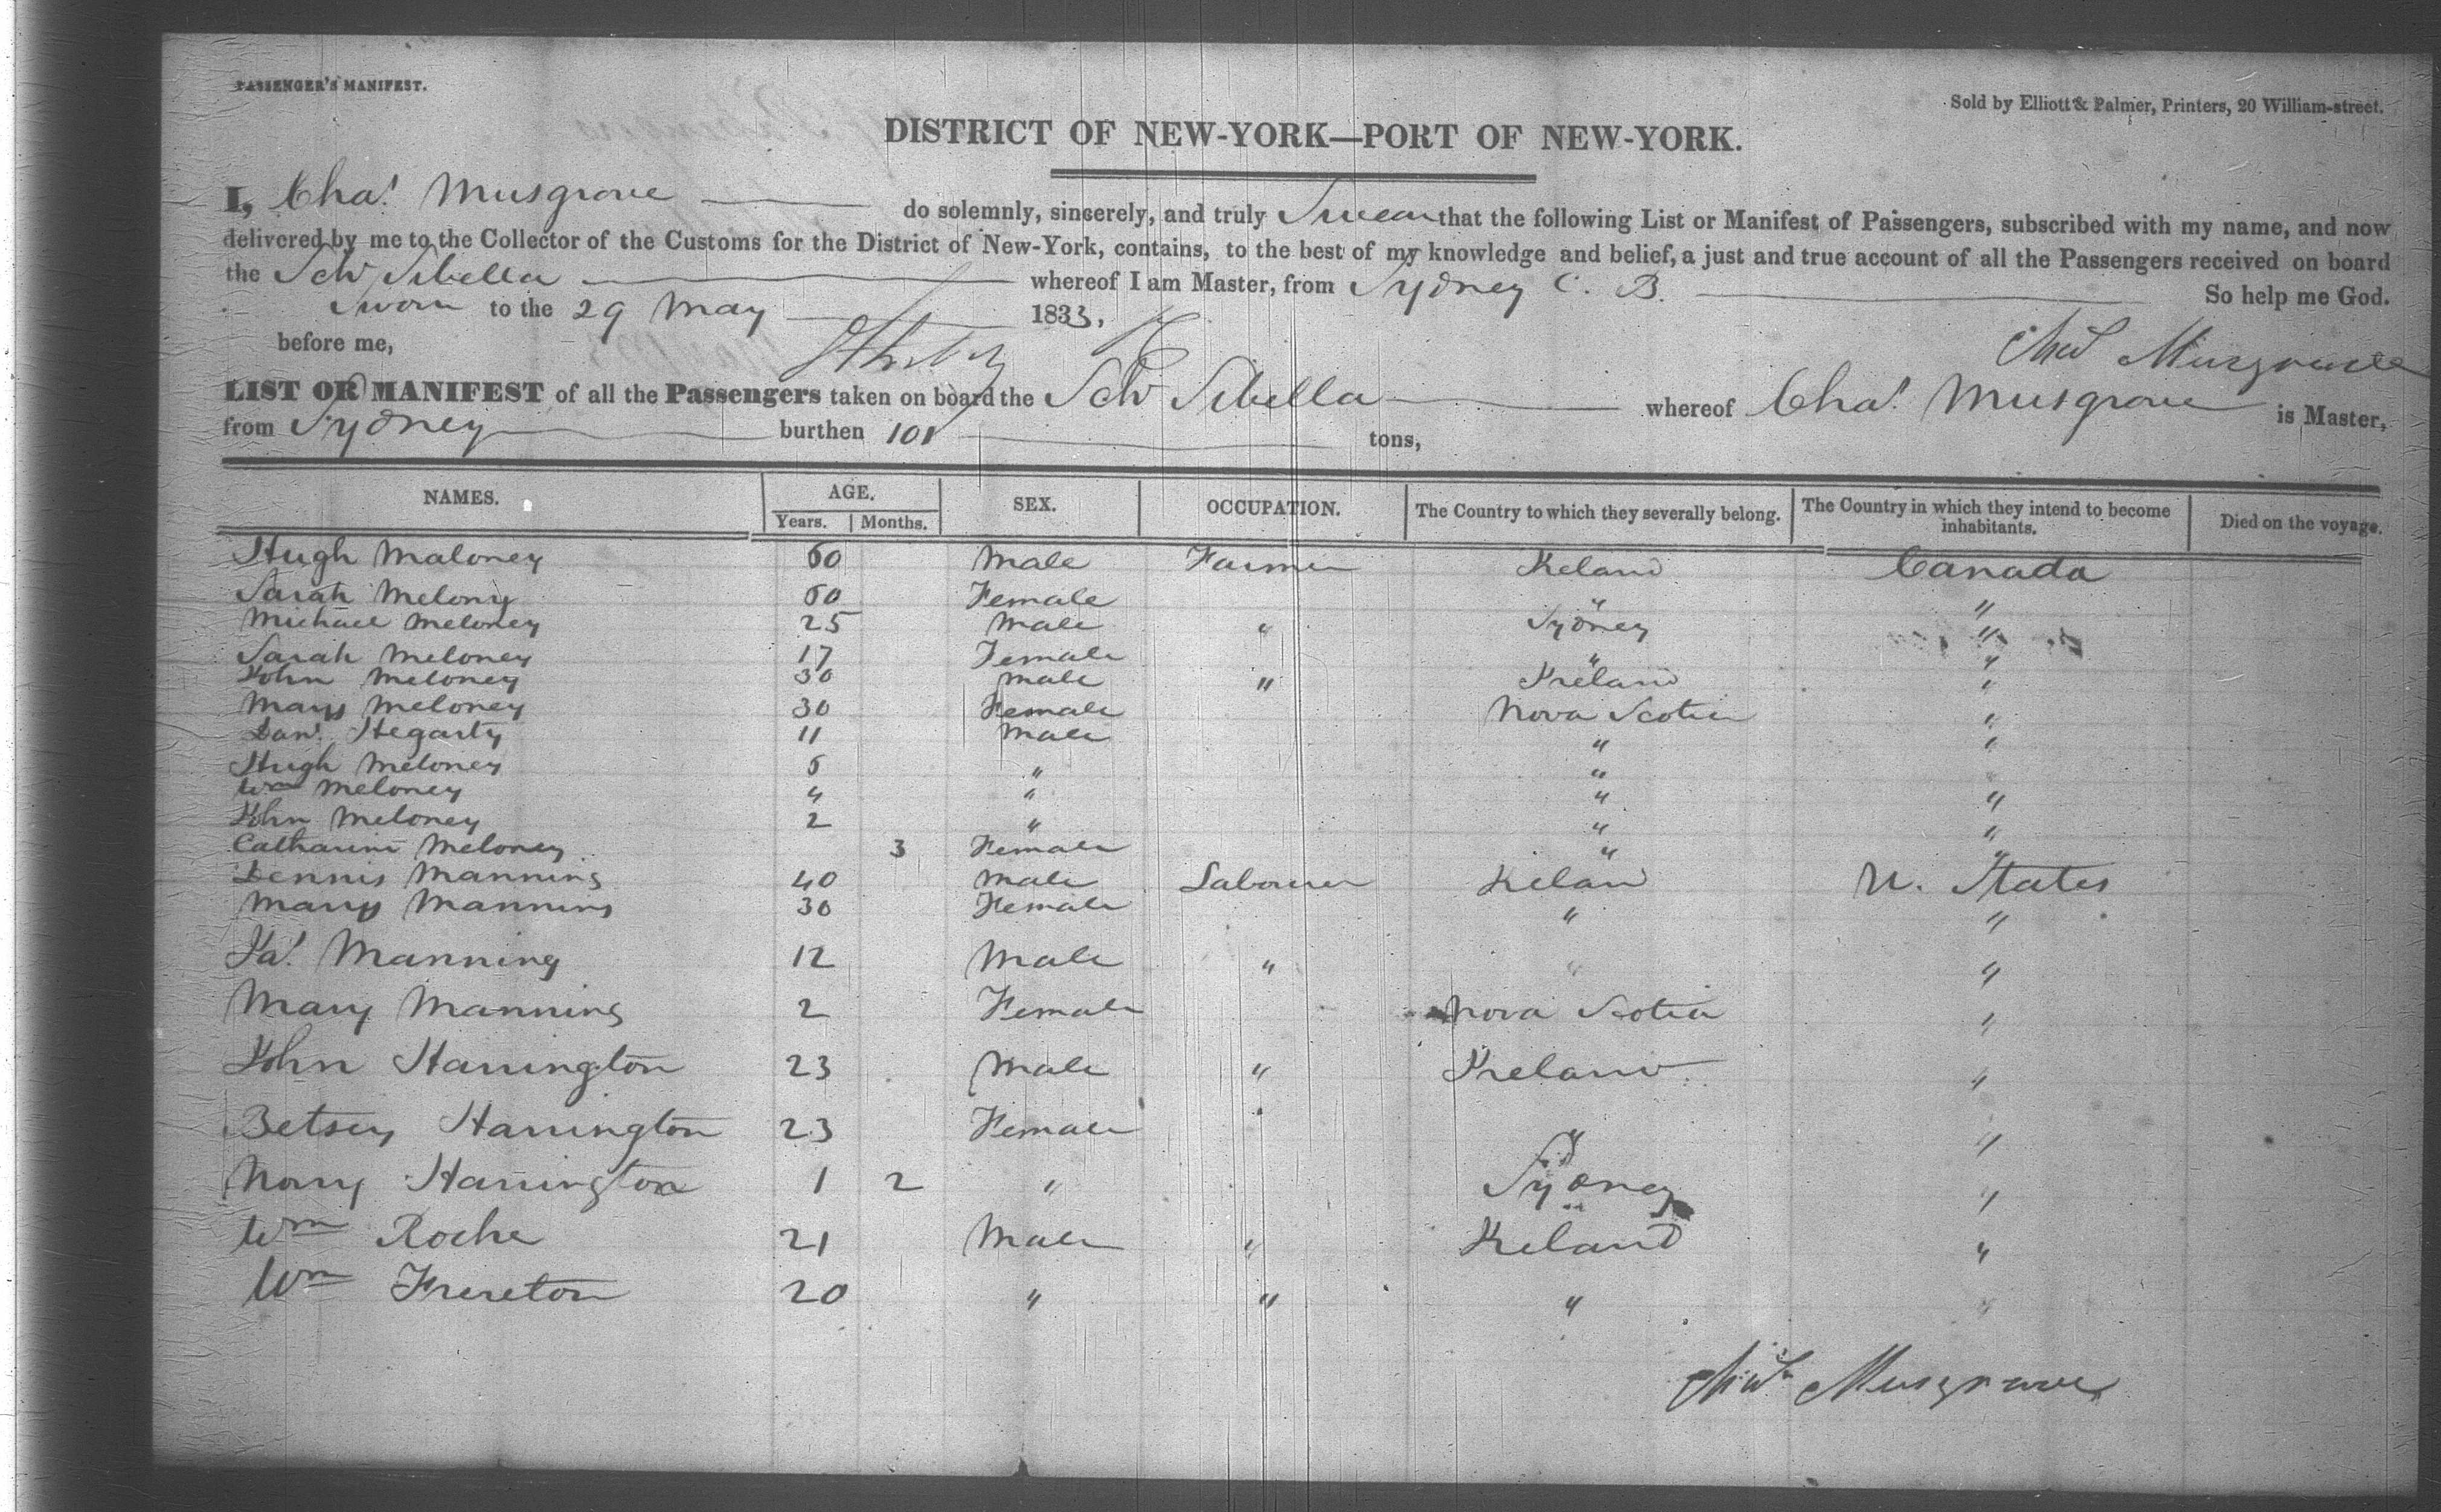 PASSENGER'S MANIFEST.
Sold by Elliott & Palmer, Printers, 20 William-street.
DISTRICT OF NEW-YORK—PORT OF NEW-YORK.
I, Chas. Musgrave do solemnly, sincerely, and truly Swear that the following List or Manifest of Passengers, subscribed with my name, and now
delivered by me to the Collector of the Customs for the District of New-York, contains, to the best of my knowledge and belief, a just and true account of all the Passengers received on board
the Schr Sibella whereof I am Master, from Sydney C. B. So help me God.
Sworn to the 29 May 1833,
before me, Chas Musgrave
LIST OR MANIFEST of all the Passengers taken on board the Schr Sibella whereof Chas. Musgrave is Master,
from Sydney burthen 101 tons,
NAMES. AGE. Years. Months. SEX. OCCUPATION. The Country to which they severally belong. The Country in which they intend to become inhabitants. Died on the voyage.
Hugh Maloney 60 Male Farmer Ireland Canada
Sarah Melony 60 Female " "
Michael Meloney 25 Male " Sydney "
Sarah Meloney 17 Female " "
John Meloney 30 Male " Ireland "
Mary Meloney 30 Female Nova Scotia "
Danl. Hegarty 11 Male " "
Hugh Meloney 6 " "
Wm Meloney 4 " " "
John Meloney 2 " " "
Catharine Meloney 3 Female " "
Dennis Manning 40 Male Labourer Ireland U. States
Mary Manning 30 Female " "
Jas. Manning 12 Male " " "
Mary Manning 2 Female Nova Scotia "
John Harrington 23 Male " Ireland "
Betsey Harrington 23 Female " "
Nory Harrington 1 2 " Sydney "
Wm Roche 21 Male " Ireland "
Wm Frereton 20 " " " "
Chas Musgrave